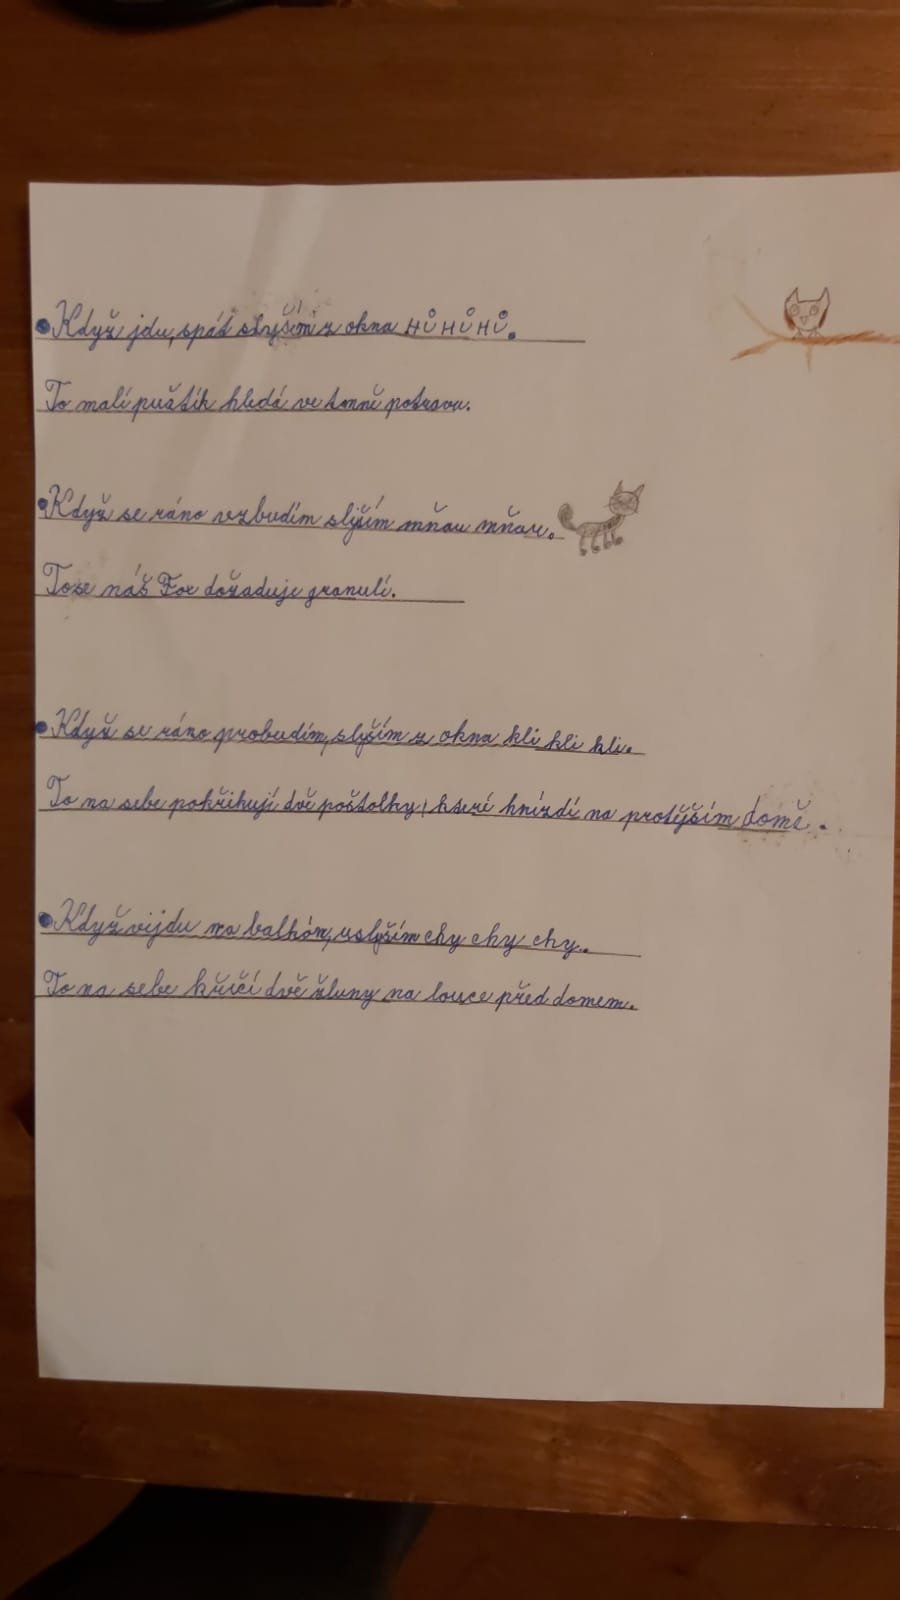 Když jdu, spát slyším z okna HŮHŮHŮ.
To malí puštík hledá ve tmně potravu.
Když se ráno vzbudím slyším mňau mňau.
To se náš Fox dožaduje granulí.
Když se ráno probudím, slyším z okna kli kli kli.
To na sebe pokřikují dvě poštolky, kteří hnízdí na protějším domě.
Když vijdu na balkón, uslyším chy chy chy.
To na sebe křičí dvě žluny na louce před domem.